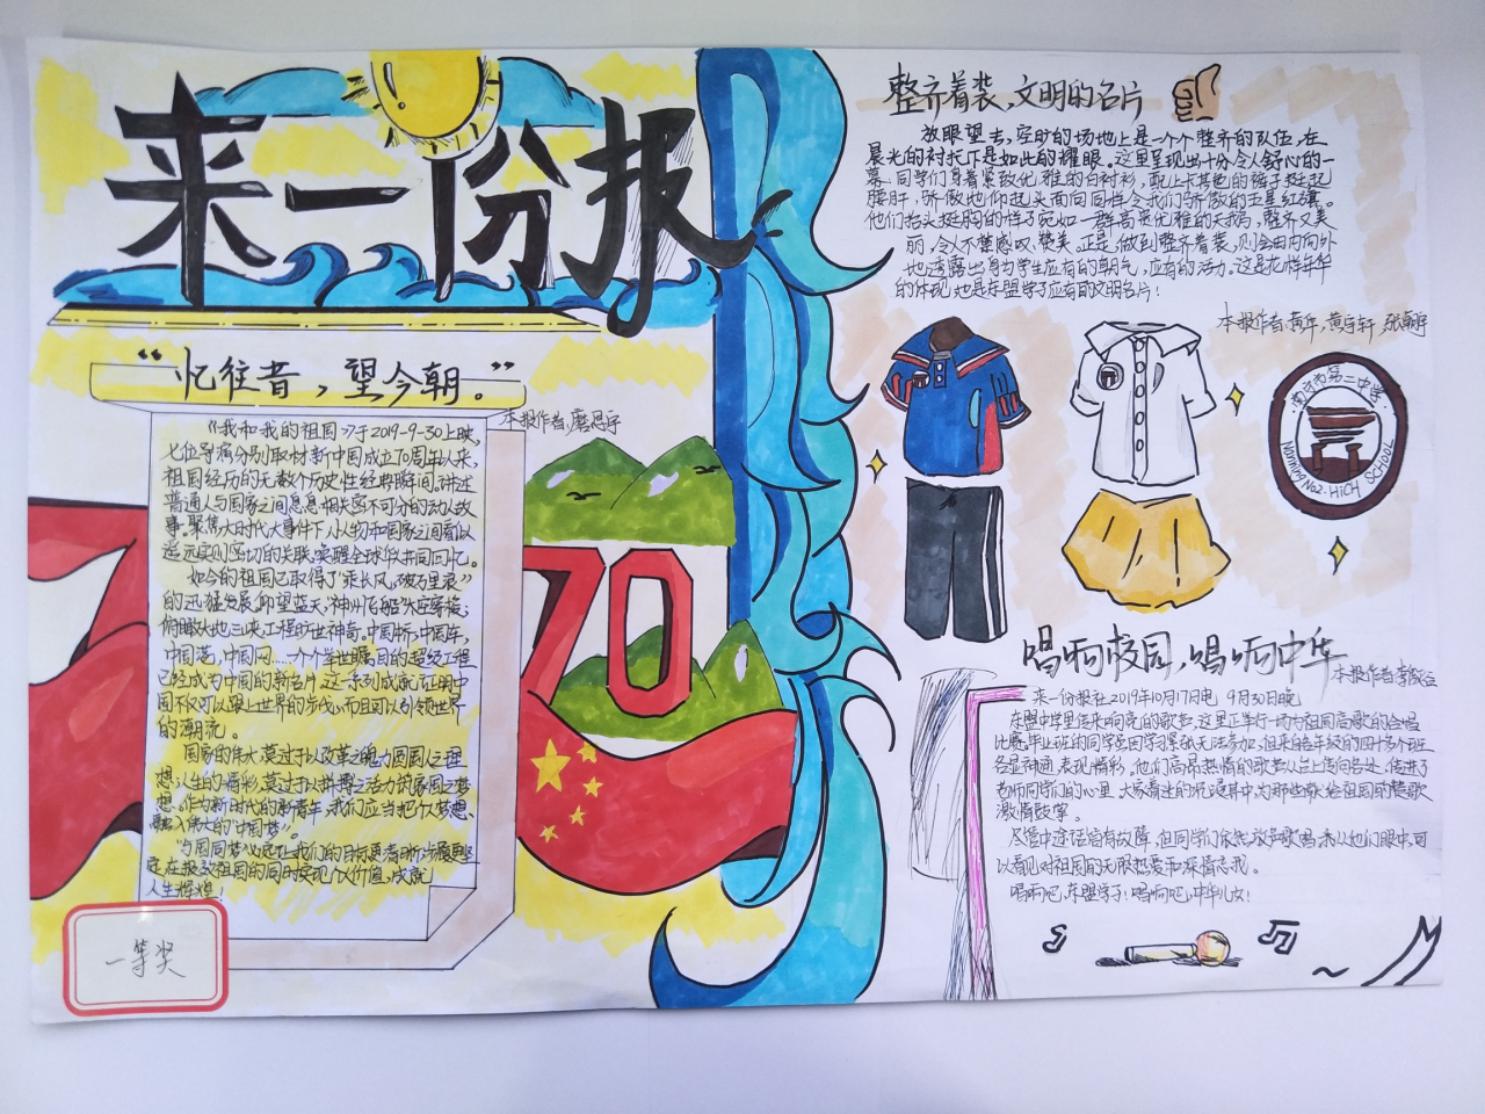 来一份报
“忆往昔，望今朝。”
本报作者:磨思宇
《我和我的祖国》于2019-9-30上映,
七位导演分别取材新中国成立70周年以来,
祖国经历的无数个历史性经典瞬间.讲述
普通人与国家之间息息相关密不可分的动人故
事。聚焦大时代大事件下,小人物和国家之间看似
遥远实则密切的关联,唤醒全球华人共同回忆。
如今的祖国已取得了“乘长风,破万里浪”
的迅猛发展,仰望蓝天,“神州”飞船太空穿梭;
俯瞰大地三峡工程旷世神奇.中国桥,中国车,
中国港,中国网……一个个举世瞩目的超级工程
已经成为中国的新名片.这一系列成就证明中
国不仅可以跟上世界的步伐,而且可以引领世界
的潮流。
国家的伟大,莫过于以改革之魄力圆国人之理
想,人生的精彩,莫过于以拼搏之活力筑家国之梦
想.作为新时代的新青年,我们应当把个人梦想,
融入伟大的“中国梦”。
与国同梦,必定让我们的目标更清晰,步履更坚
定.在报效祖国的同时实现个人价值,成就
人生辉煌!
一等奖
70
整齐着装,文明的名片
放眼望去,空旷的场地上是一个个整齐的队伍,在
晨光的衬托下是如此的耀眼。这里呈现出十分令人舒心的一
幕:同学们身着紧致优雅的白衬衫,配上卡其色的裙子挺起
腰杆,骄傲地仰起头面向同样令我们骄傲的五星红旗。
他们抬头挺胸的样子宛如一群高贵优雅的天鹅,整齐又美
丽,令人不禁感叹、赞美。正是,做到整齐着装,则会由内向外
地透露出身为学生应有的朝气,应有的活力。这是花样年华
的体现,也是东盟学子应有的文明名片!
本报作者:黄华,黄宇轩,张朝宇
南宁市第二中学
Nanning No2·HiGH SCHOOL
唱响校园,唱响中华
本报作者:李
来一份报社2019年10月17日电 9月30日晚
东盟中学里传来响亮的歌声,这里正举行一场为祖国高歌的合唱
比赛.毕业班的同学虽因学习紧张无法参加,但来自各年级的四十多个班
各显神通,表现精彩。他们高昂热情的歌声从台上传向各处,传进了
老师同学们的心里.大家着迷的沉浸其中,为那些献给祖国的赞歌
激情鼓掌。
尽管中途话筒有故障,但同学们依然放声歌唱.从他们眼中,可
以看见对祖国的无限热爱和深情忘我。
唱响吧,东盟学子!唱响吧,中华儿女!